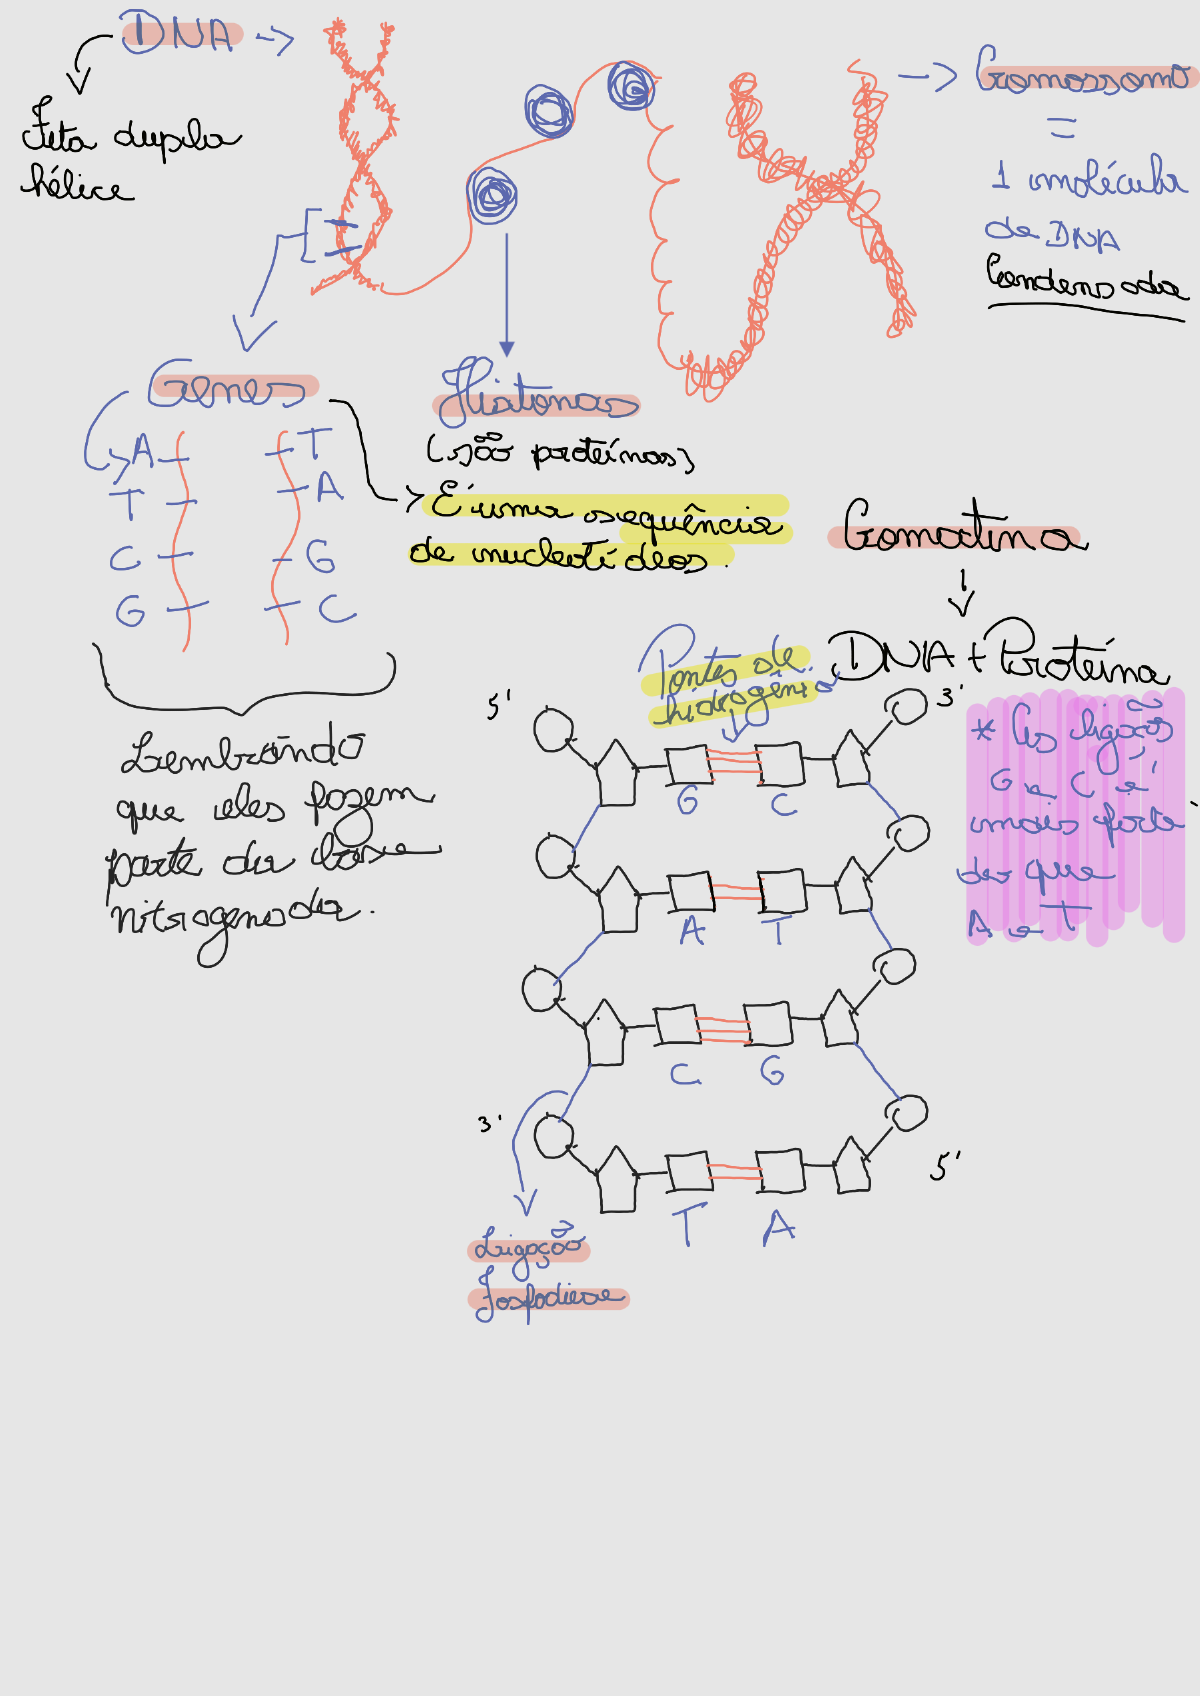 DNA
Fita dupla
hélice
Cromossomo
=
1 molécula
de DNA
Condensada
Genes
A T
T A
C G
G C
Histonas
(são proteínas)
É uma sequência
de nucleotídeos.
Lembrando
que eles fazem
parte da base
nitrogenada.
Cromatina
DNA + Proteína
Pontes de
hidrogênio
5' 3'
G C
A T
C G
3' 5'
T A
* As ligações
G e C é
mais forte
do que
A e T
Ligação
fosfodiese